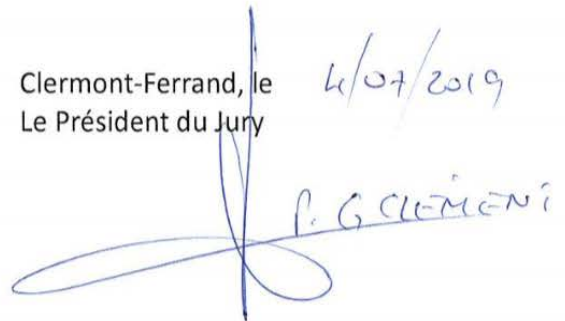 Clermont-Ferrand, le 4/07/2019
Le Président du Jury
P. G CLEMENT